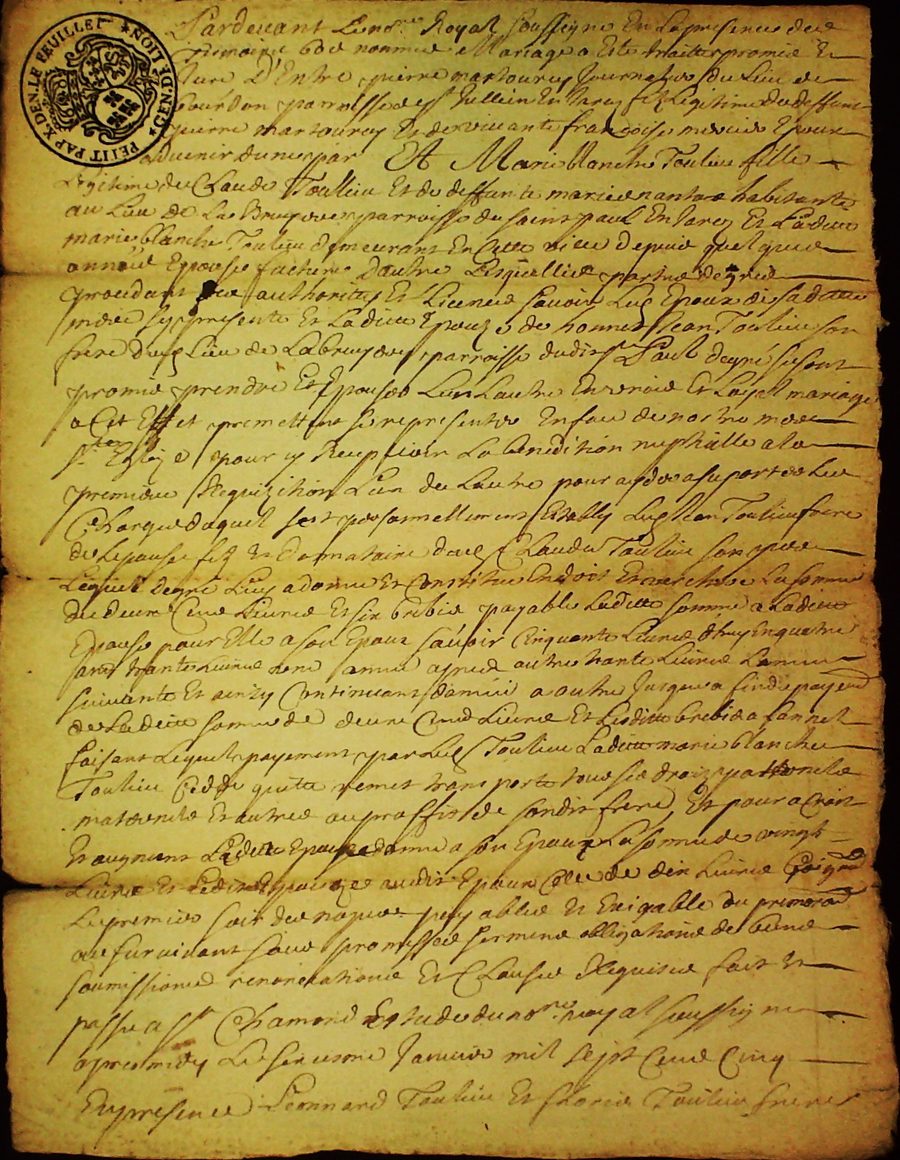 PETIT PAP X DEN. LE FEUILLET GEN. DE LION
Pardevant Le no.re Royal soussigne En La presence des
nommes Mariage a Este traitte promis Et
D'Entre pierre martourey Journallier du Lieu de
parroisse de st Jullien En Jarez fils Legitime de deffunt
pierre martourey Et de vivante françoise Epoux
advenir dune par Et Marie blanche Toulieu fille
Legitime de Claude Toulieu Et de deffunte marie habitante
au Lieu de La Bruyere parroisse du saint paul En Jarez Et Ladite
marie blanche Toulieu demeurant En Cette ville depuis quelques
année Epouse future d'autre Lesquelles parties de gré
procedant authorité Et Licence savoir Led Epoux de sa ditte
mere icy presente Et Laditte Epouze de honnest Jean Toulieu son
frere dud Lieu de La bruyere parroisse dudit st Paul de gré se sont
promis prendre Et Epouser L'un L'autre En vraie Et Loyal mariage
a Cet Effet promettent se representer En face de nostre mere
ste Eglize pour y Recepvoir La benediction nuptialle a la
premiere Requizition L'un de L'autre pour ayder a suporter Les
Charques duquel sest personnellement Estably Led Jean Toulieu frere
de Lepouse fils Et donnataire dud Claude Toulieu son pere
Lequel de gré Luy a donné Et Constitué En dot Et La somme
de deux Cens Livres Et six brebis payable Laditte somme a Laditte
Epouse pour Elle a son Epoux savoir Cinquante Livres d'huy En quatre
ans trante Livres annee apres autre trante Livres L'annee
suivante Et ainsy Continuant d'année a autre Jusques a fin de payement
de Laditte somme de deux Cens Livres Et Lesditte brebis a
faisant Lequel payement par Led Toulieu Laditte marie blanche
Toulieu Cedde quitte remet transporte tous ses droiz paternels
maternels Et autres au proffit de sondit frere Et pour
Et augment Laditte Epouze donne a son Epoux La somme de vingt
Livres Et Ledit Epoux a Celle de dix Livres
Le premier soir des noces payables Et Exigable du premourant
au survivant sous promisses serment obligations de biens
soumissions renonciations Et Clauses Requises fait Et
passé a st Chamond Estude du no.re royal soussigné
apres midy Le Janvier mil sept Cens Cinq
En presence Leonnard Toulieu Et Toulieu freres